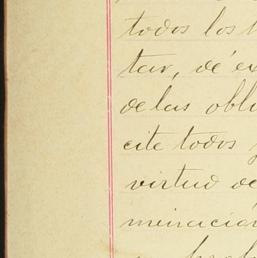 todos los
tar, dé ex
de las obli
cite todos y
virtud de
minación